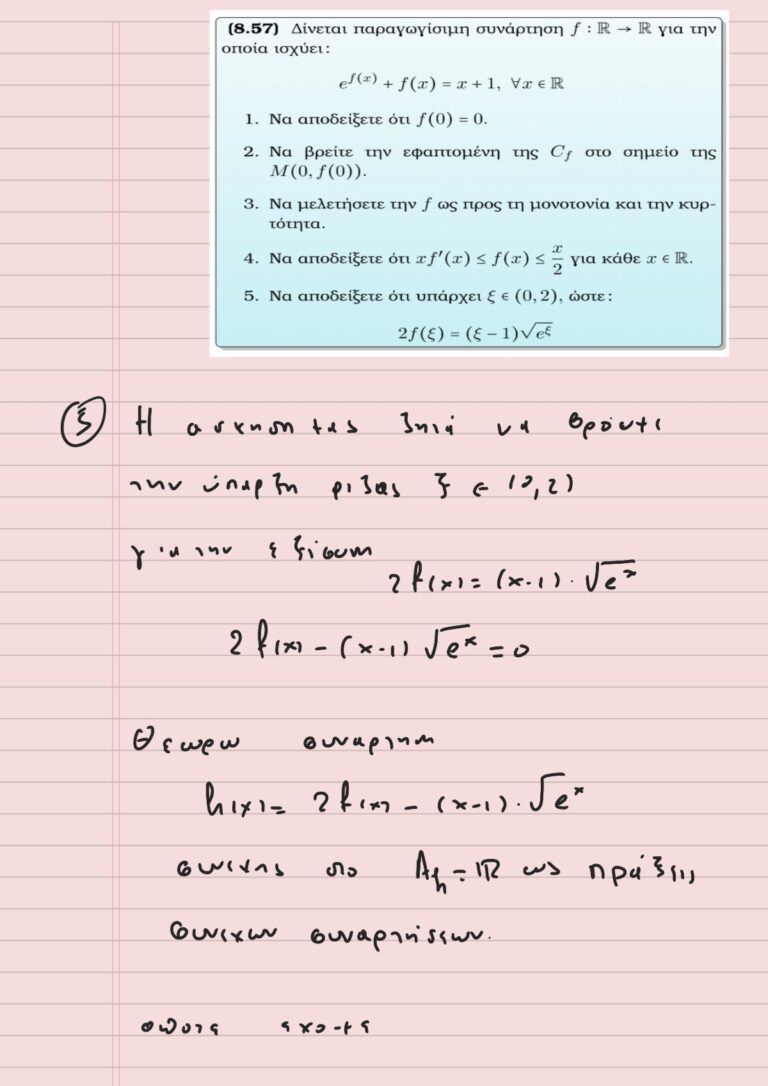 (8.57) Δίνεται παραγωγίσιμη συνάρτηση f : ℝ → ℝ για την
οποία ισχύει:
e^{f(x)} + f(x) = x + 1, ∀x ∈ ℝ
1. Να αποδείξετε ότι f(0) = 0.
2. Να βρείτε την εφαπτομένη της C_f στο σημείο της
M(0, f(0)).
3. Να μελετήσετε την f ως προς τη μονοτονία και την κυρ-
τότητα.
4. Να αποδείξετε ότι xf′(x) ≤ f(x) ≤ x/2 για κάθε x ∈ ℝ.
5. Να αποδείξετε ότι υπάρχει ξ ∈ (0, 2), ώστε:
2f(ξ) = (ξ − 1)√e^ξ
⑤ Η άσκηση μας ζητά να βρούμε
την ύπαρξη ρίζας ξ ∈ (0,2)
για την εξίσωση
2f(x) = (x-1)·√e^x
2f(x) - (x-1)√e^x = 0
Θεωρω συναρτηση
h(x) = 2f(x) - (x-1)·√e^x
συνεχης στο A_h = ℝ ως πράξεις
συνεχων συναρτήσεων.
οποτε εχουμε